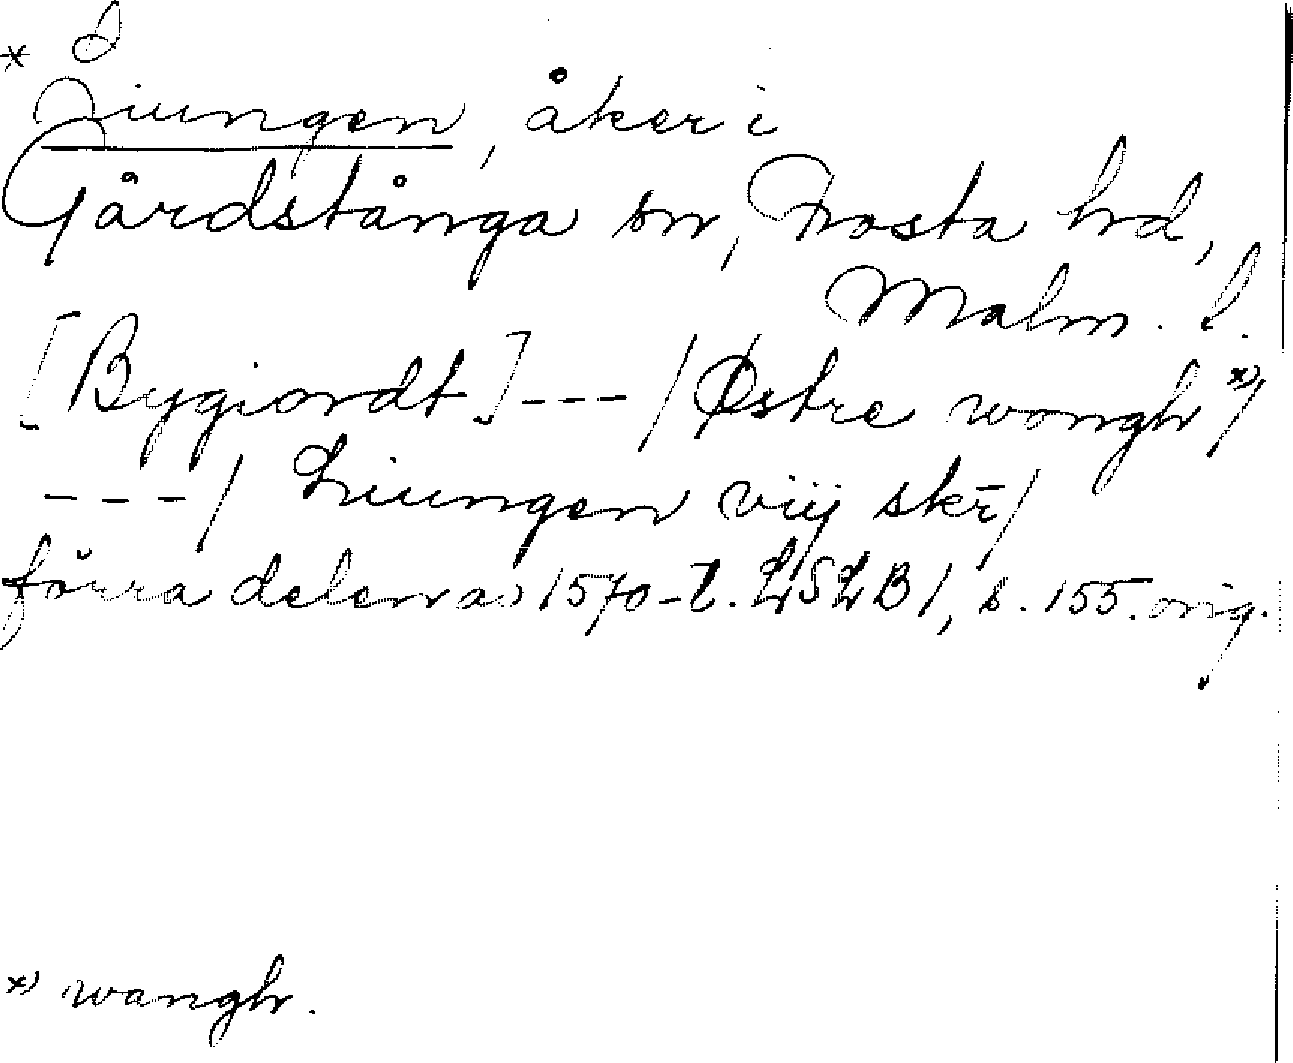 * Liungen, åker i
Gårdstånga sn, Frosta hd,
Malm. l.
[Bygiordt] --- / Østre wongh *) /
--- / Liungen viij skr̄ /
förra delen av 1570-t. LSLB 1, s. 155. orig.
*) wangh.